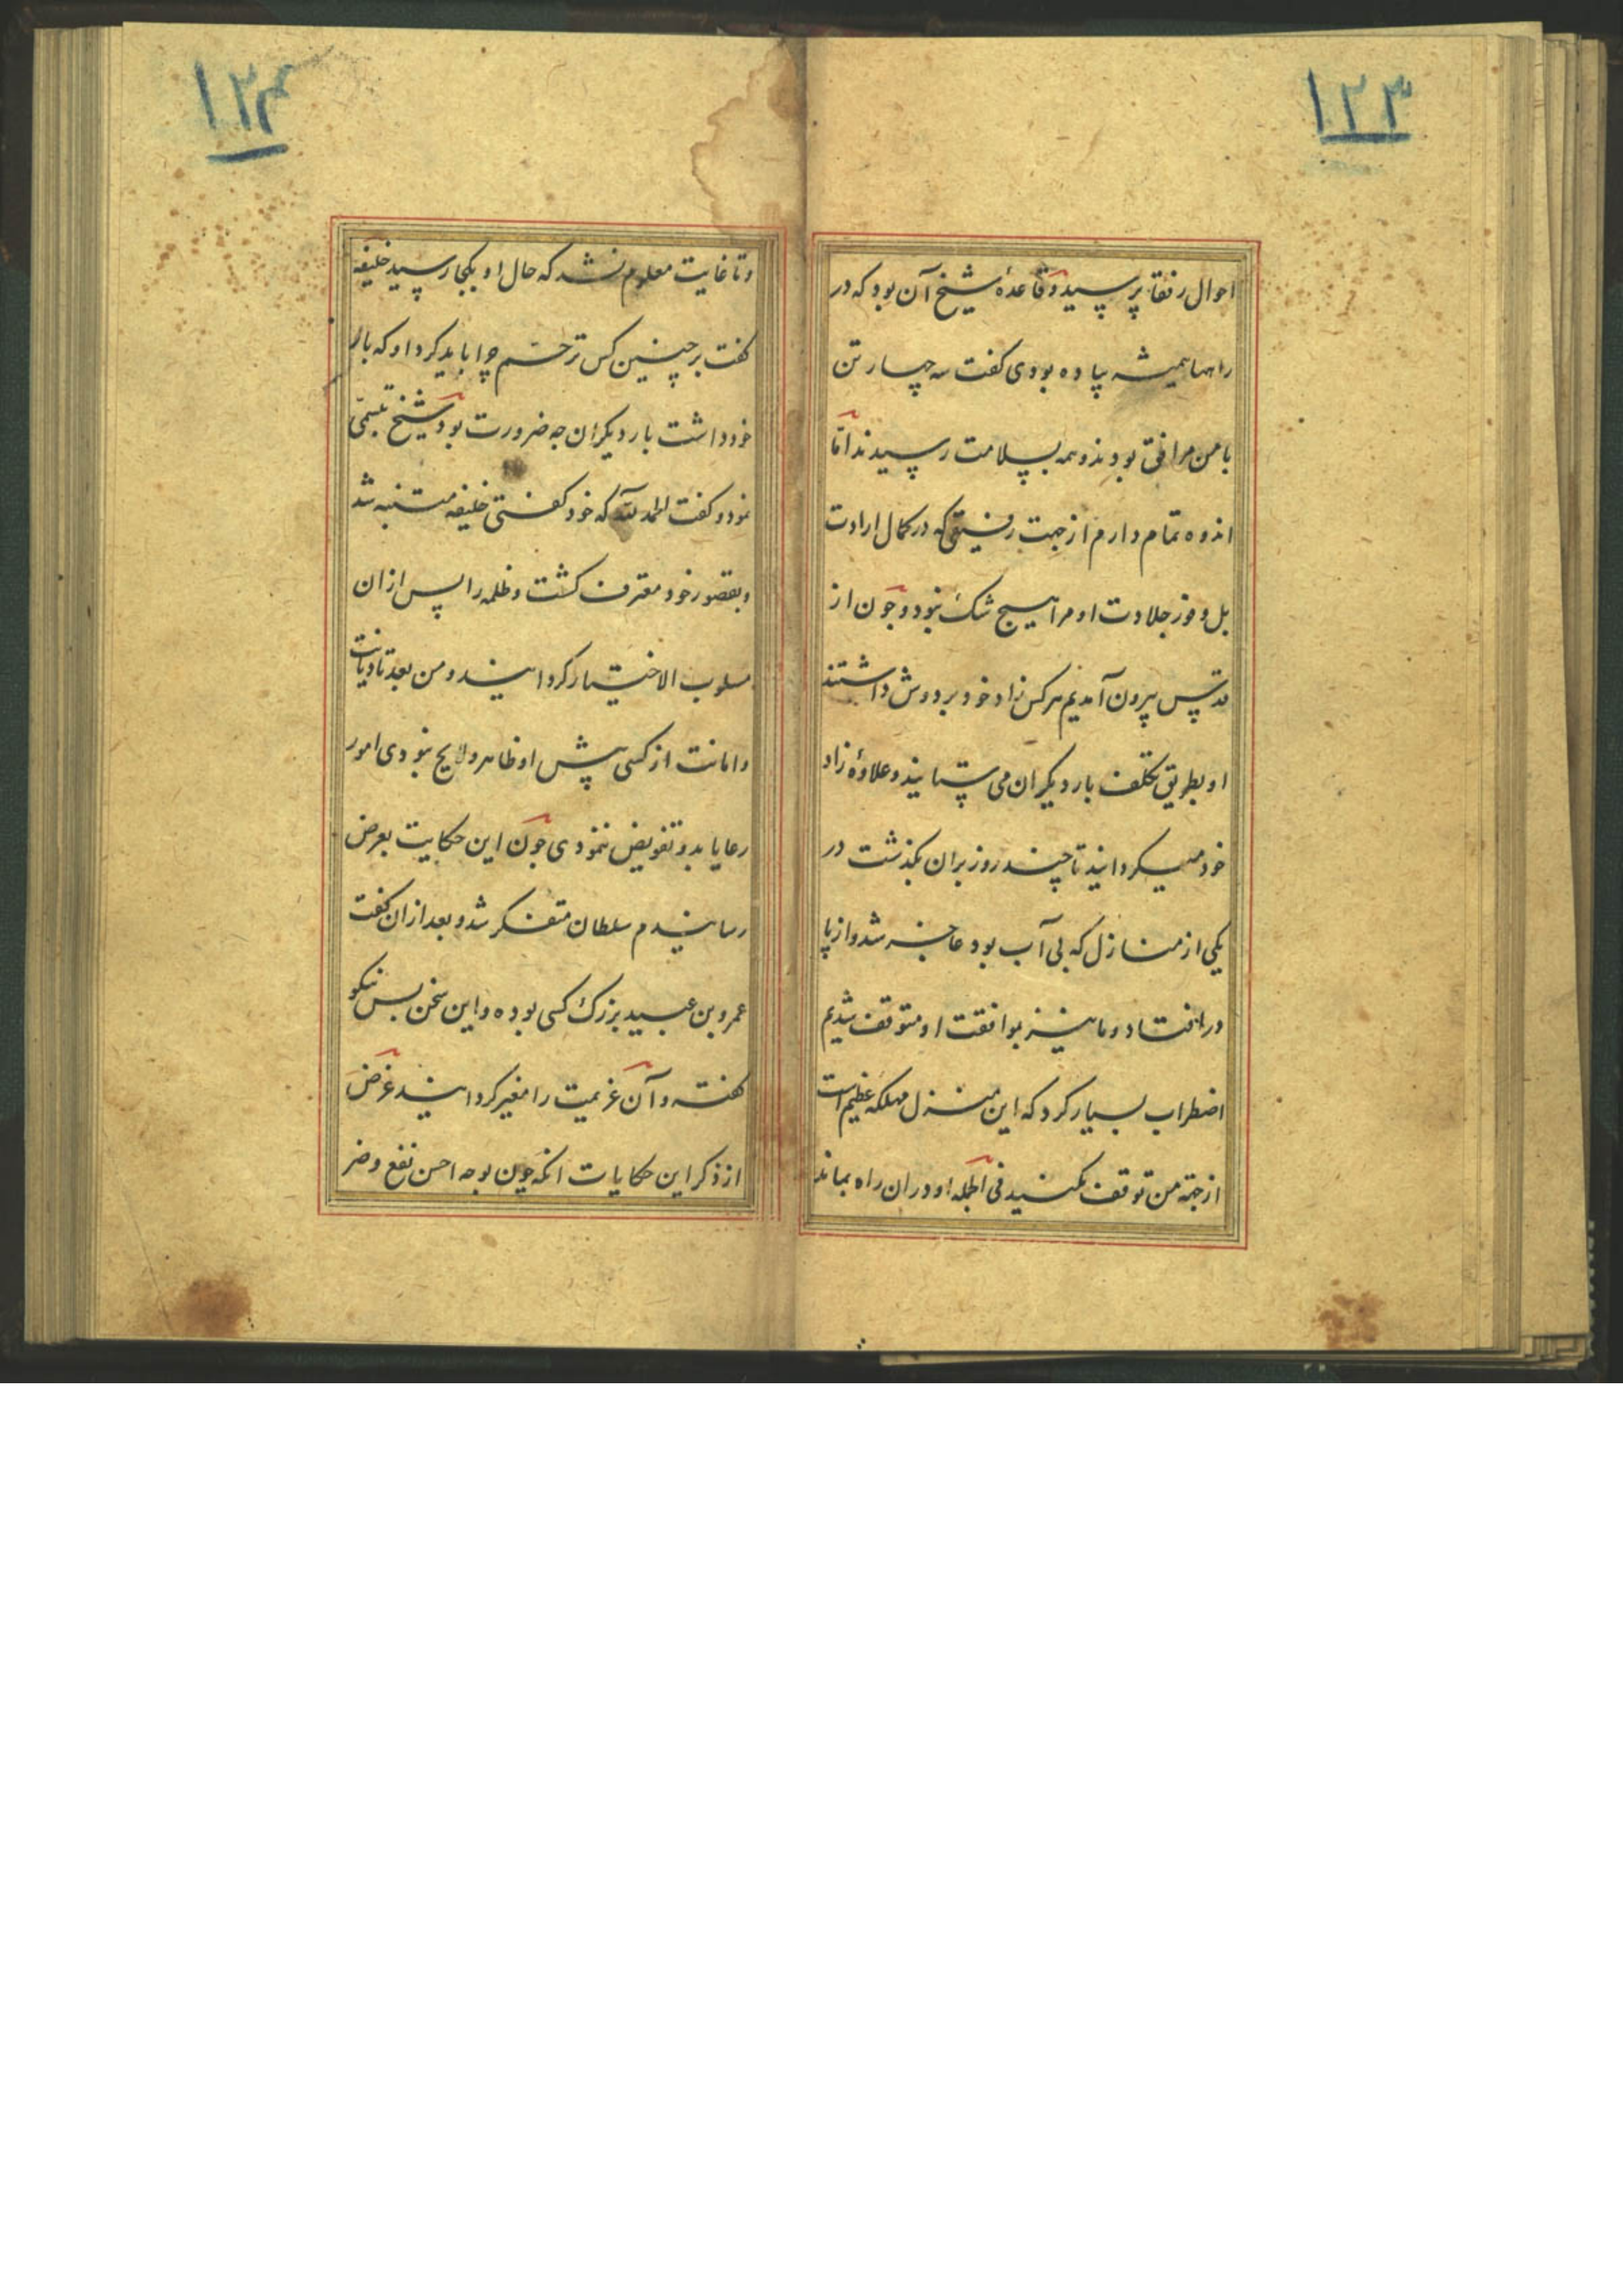 ۱۲۳
احوال رفقا پرسید و قاعدهٔ شیخ آن بود که در
راهها همیشه پیاده بودی گفت سه چهار تن
با من مرافق بودند و همه بسلامت رسیدند اما
اندوه تمام دارم از جهت رفیقی که در کمال ارادت
بل وفور جلادت او مرا هیچ شک نبود و چون از
قدس بیرون آمدیم هر کس زاد خود بر دوش داشتند
او بطریق تکلف بار دیکران می ستانید و علاوهٔ زاد
خود میکردانید تا چند روز بران بکذشت در
یکی از منازل که بی آب بود عاجز شد و از پا
درافتاد و ما نیز بموافقت او متوقف شدیم
اضطراب بسیار کرد که این منزل مهلکه عظیم است
از جهة من توقف مکنید فی الجمله او دران راه بماند
۱۲۴
و تا غایت معلوم نشد که حال او بکجا رسید خلیفه
کفت بر چنین کس ترحم چرا باید کرد او که بار
خود داشت بار دیکران چه ضرورت بود شیخ تبسمی
نمود و کفت الحمد لله که خود کفتی خلیفه متنبه شد
و بقصور خود معترف کشت و ظلمه را پس ازان
مسلوب الاختیار کردانید و من بعد تا دیانت
و امانت از کسی پیش او ظاهر و لایح نبودی امور
رعایا بدو تفویض ننمودی چون این حکایت بعرض
رسانیدم سلطان متفکر شد و بعد ازان کفت
عمرو بن عبید بزرک کسی بوده و این سخن بس نیکو
کفته و آن عزیمت را مغیر کردانید غرض
از ذکر این حکایات انکه چون بوجه احسن نفع و ضر